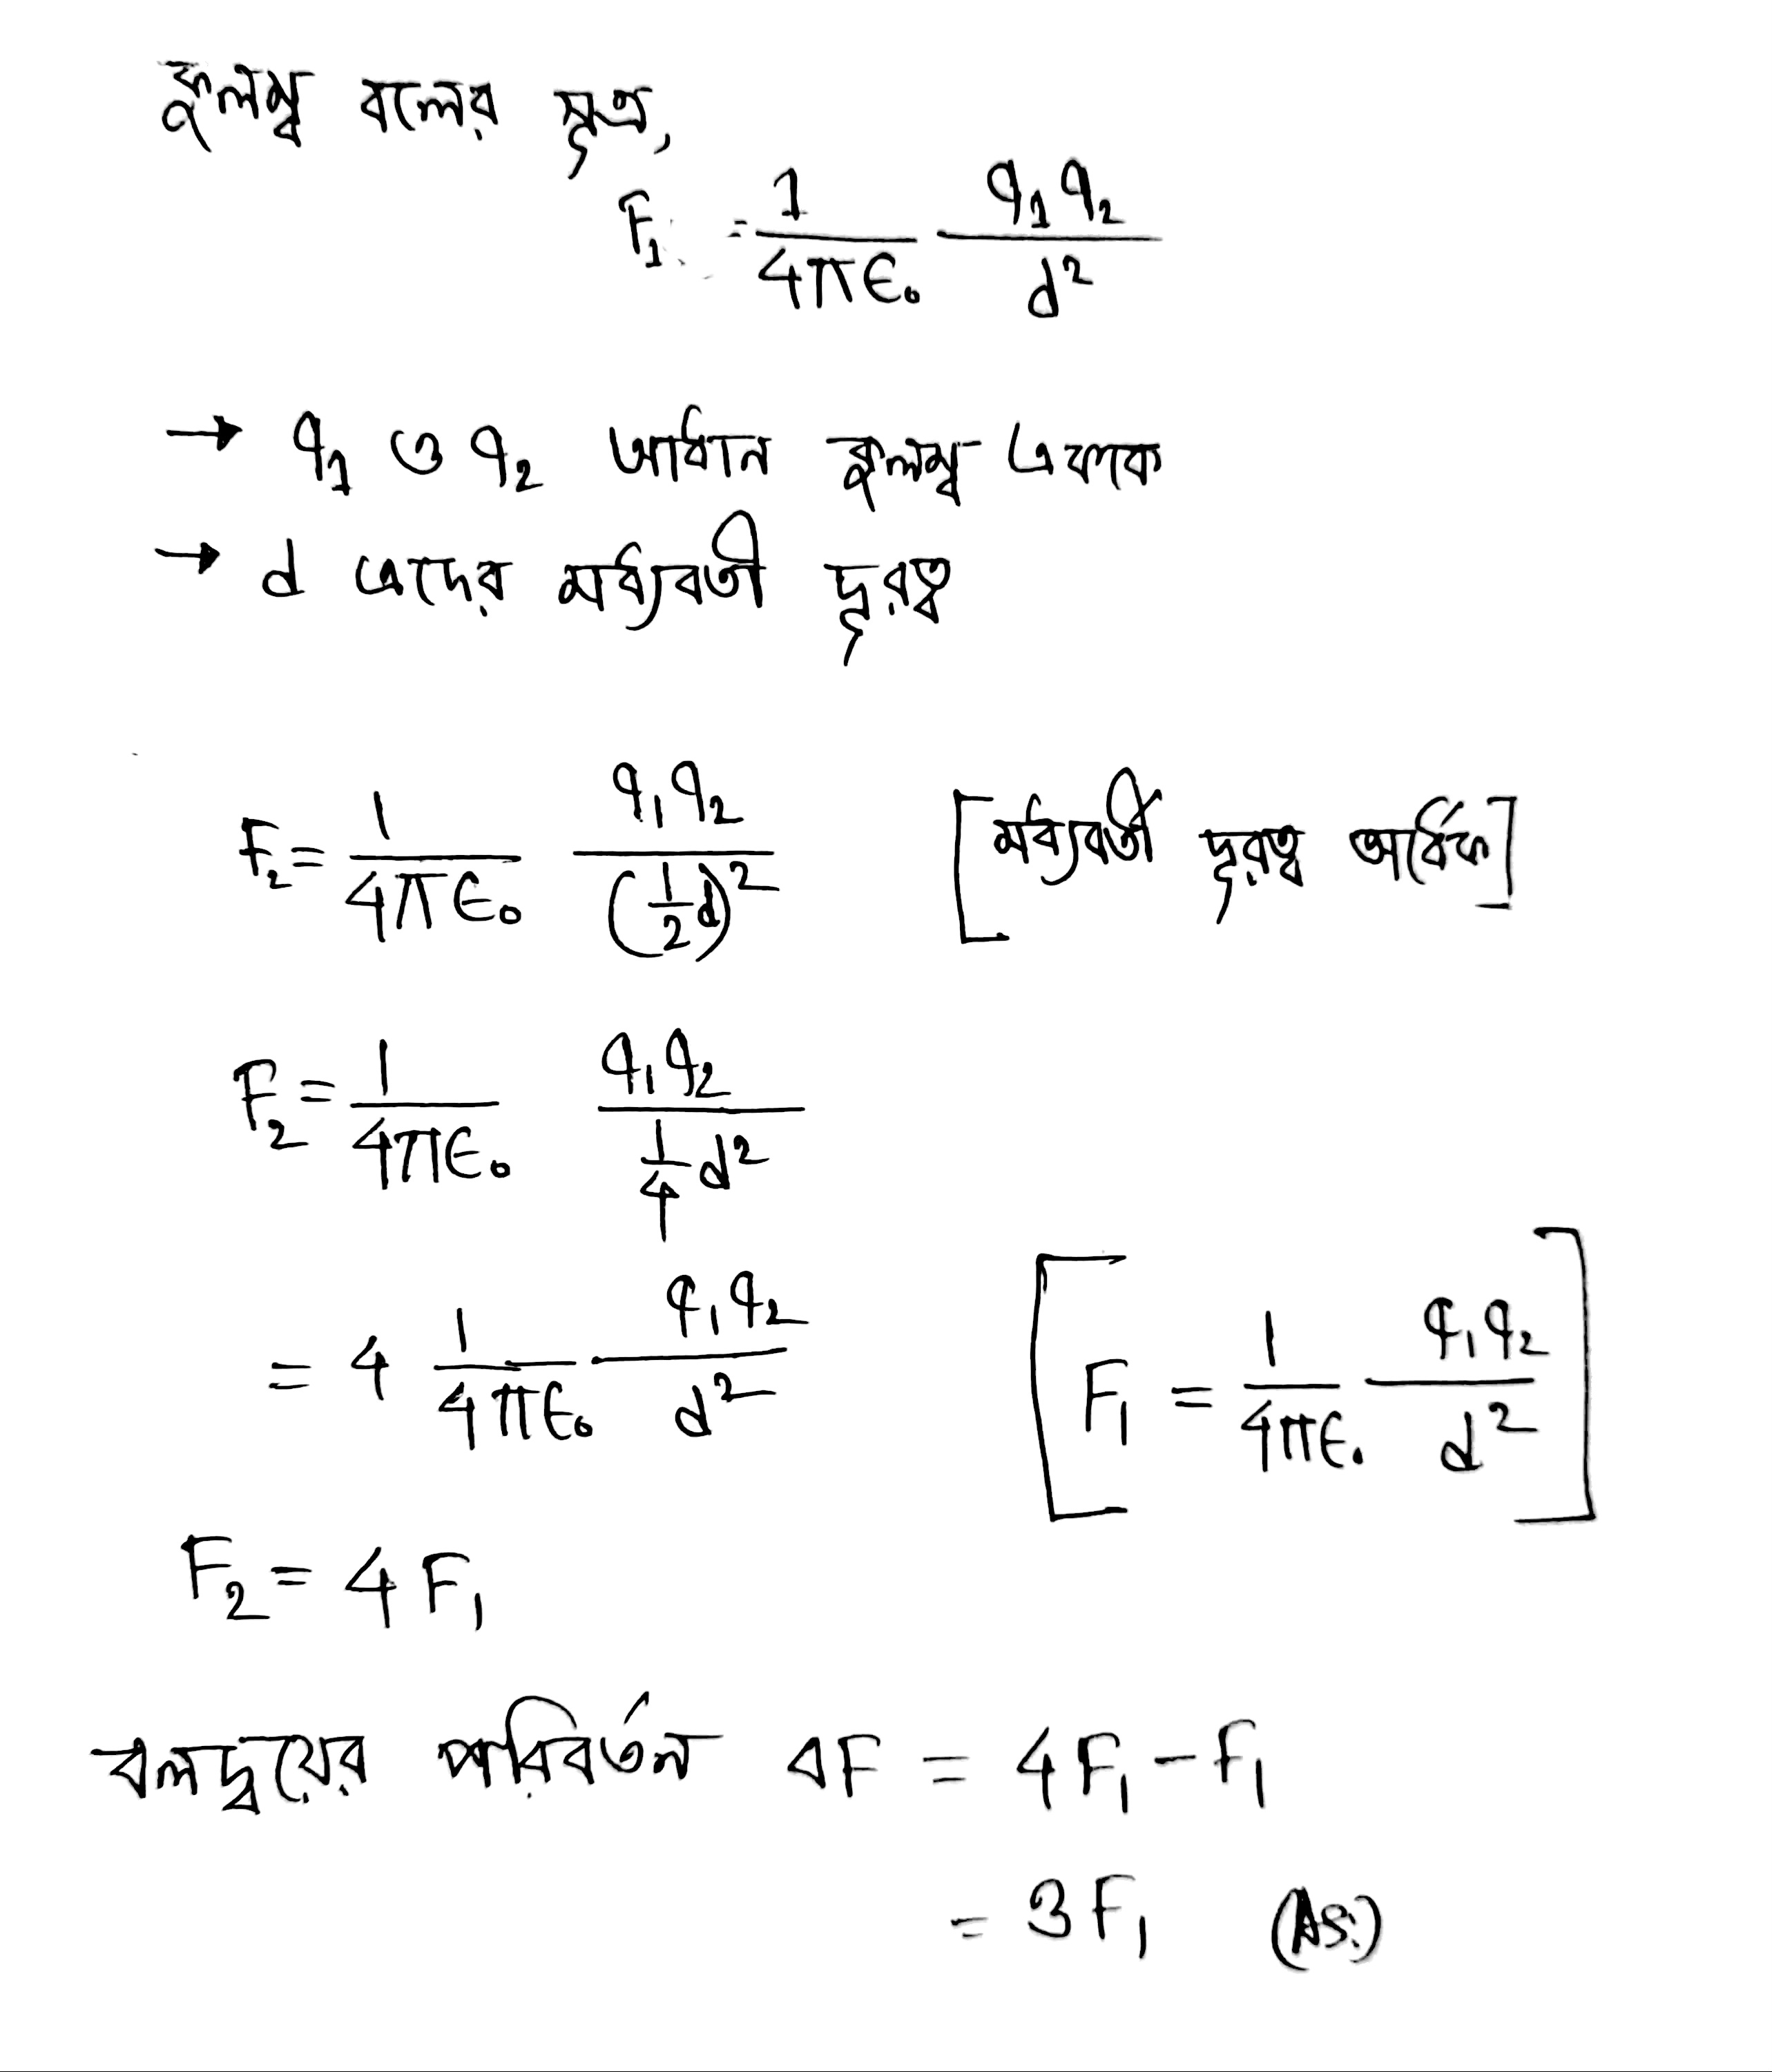 কুলম্ব বলের সূত্র,
F₁ = 1/4πϵ₀ q₁q₂/d²
→ q₁ ও q₂ আধান কুলম্ব এককে
→ d এদের মধ্যবর্তী দূরত্ব
F₂ = 1/4πϵ₀ q₁q₂/(1/2 d)² [মধ্যবর্তী দূরত্ব অর্ধেক]
F₂ = 1/4πϵ₀ q₁q₂/(1/4 d²)
= 4 1/4πϵ₀ q₁q₂/d² [F₁ = 1/4πϵ₀ q₁q₂/d²]
F₂ = 4F₁
বলদ্বয়ের পরিবর্তন ΔF = 4F₁ - F₁
= 3F₁ (As:)